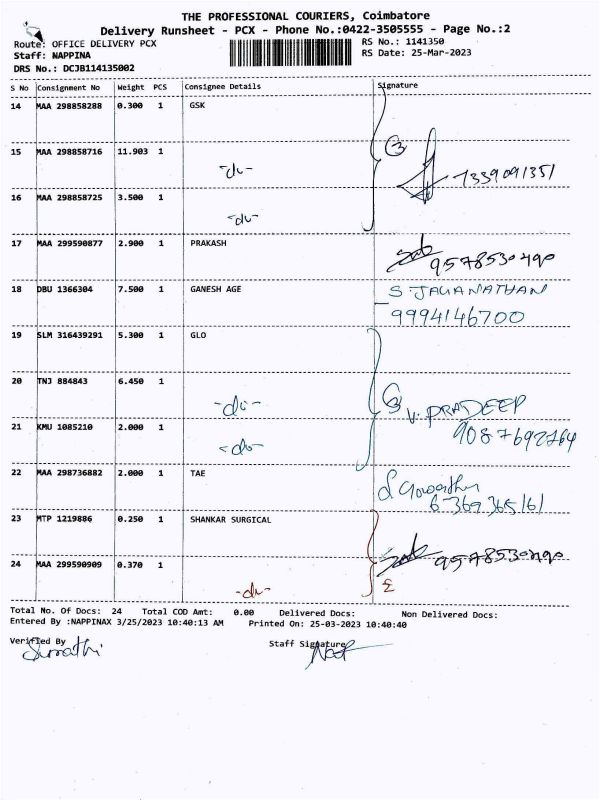 THE PROFESSIONAL COURIERS, Coimbatore
Delivery Runsheet - PCX - Phone No.:0422-3505555 - Page No.:2
Route: OFFICE DELIVERY PCX
RS No.: 1141350
Staff: NAPPINA
RS Date: 25-Mar-2023
DRS No.: DCJB114135002
S No Consignment No Weight PCS Consignee Details Signature
14 MAA 298858288 0.300 1 GSK
15 MAA 298858716 11.903 1
-do- 3 7339091351
16 MAA 298858725 3.500 1
-do-
17 MAA 299590877 2.900 1 PRAKASH
9578530490
18 DBU 1366304 7.500 1 GANESH AGE S JAGANATHAN
9994146700
19 SLM 316439291 5.300 1 GLO
20 TNJ 884843 6.450 1
-do- 3 V. PRADEEP
21 KMU 1085210 2.000 1 9087692764
-do-
22 MAA 298736882 2.000 1 TAE
6369365161
23 MTP 1219886 0.250 1 SHANKAR SURGICAL
9578530490
24 MAA 299590909 0.370 1
-do-
Total No. Of Docs: 24 Total COD Amt: 0.00 Delivered Docs: Non Delivered Docs:
Entered By :NAPPINAX 3/25/2023 10:40:13 AM Printed On: 25-03-2023 10:40:40
Verified By Staff Signature